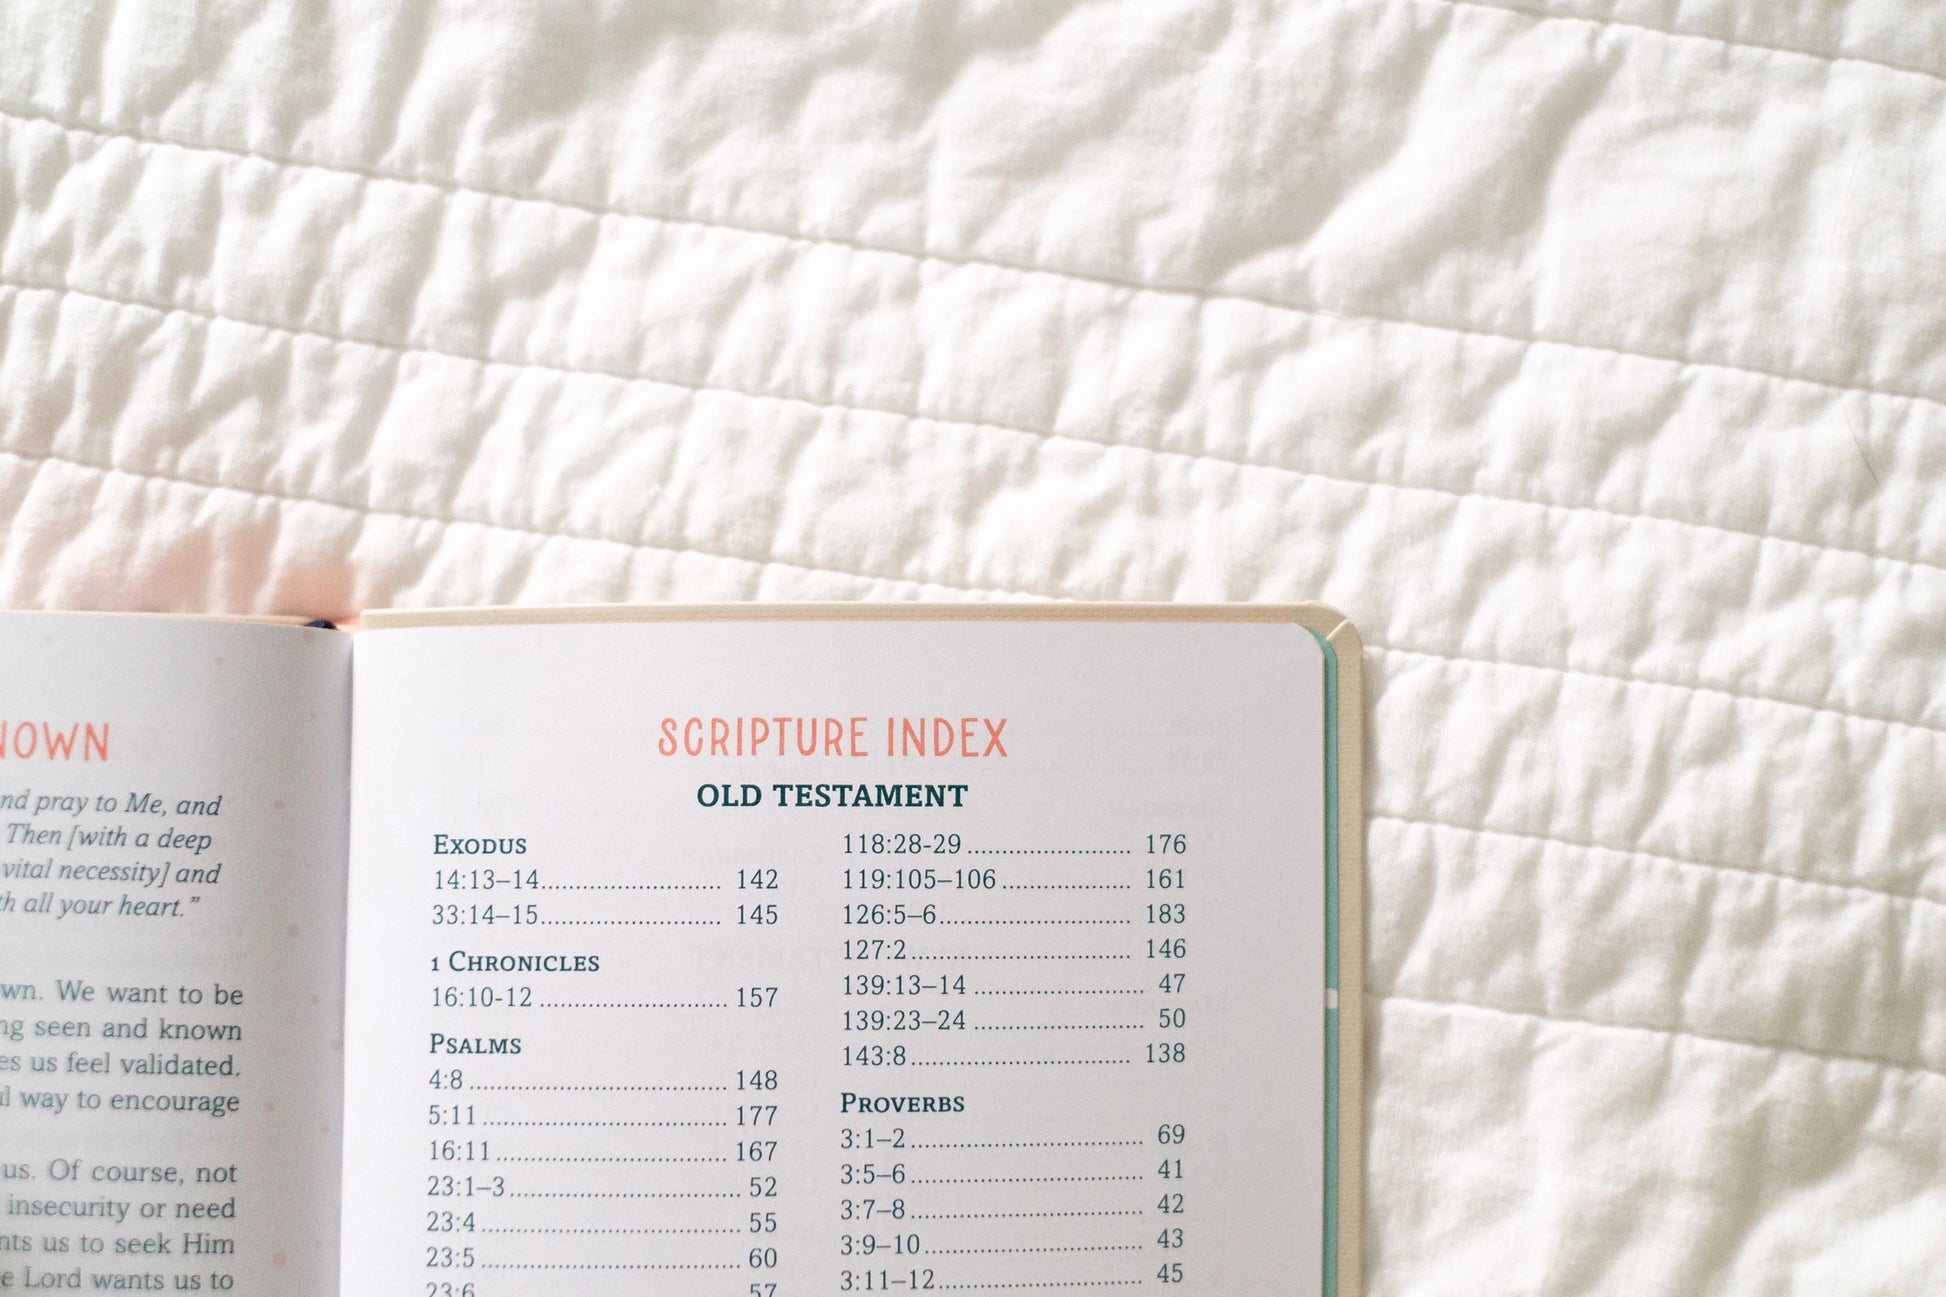 NOWN
nd pray to Me, and
Then [with a deep
vital necessity] and
th all your heart."
wn. We want to be
ng seen and known
es us feel validated.
ul way to encourage
us. Of course, not
insecurity or need
nts us to seek Him
e Lord wants us to
SCRIPTURE INDEX
OLD TESTAMENT
EXODUS
14:13–14 142
33:14–15 145
1 CHRONICLES
16:10-12 157
PSALMS
4:8 148
5:11 177
16:11 167
23:1–3 52
23:4 55
23:5 60
23:6 57
118:28-29 176
119:105–106 161
126:5–6 183
127:2 146
139:13–14 47
139:23–24 50
143:8 138
PROVERBS
3:1–2 69
3:5–6 41
3:7–8 42
3:9–10 43
3:11–12 45